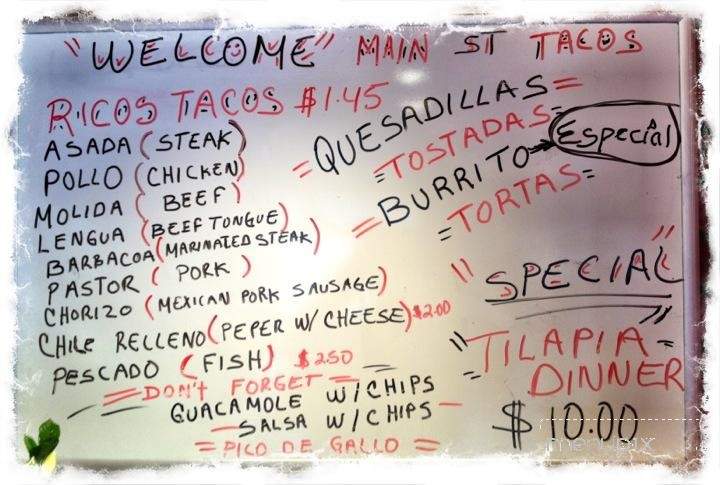 "WELCOME" MAIN ST TACOS
RICOS TACOS $1.45
ASADA (STEAK)
POLLO (CHICKEN)
MOLIDA (BEEF)
LENGUA (BEEF TONGUE)
BARBACOA (MARINATED STEAK)
PASTOR (PORK)
CHORIZO (MEXICAN PORK SAUSAGE)
CHILE RELLENO (PEPER W/ CHEESE) $2.00
PESCADO (FISH) $2.50
= DON'T FORGET =
GUACAMOLE W/ CHIPS
- SALSA W/ CHIPS -
= PICO DE GALLO =
= QUESADILLAS =
= TOSTADAS =
= BURRITO → Especial
= TORTAS =
"SPECIAL"
"TILAPIA =
= DINNER
$10.00
menupix